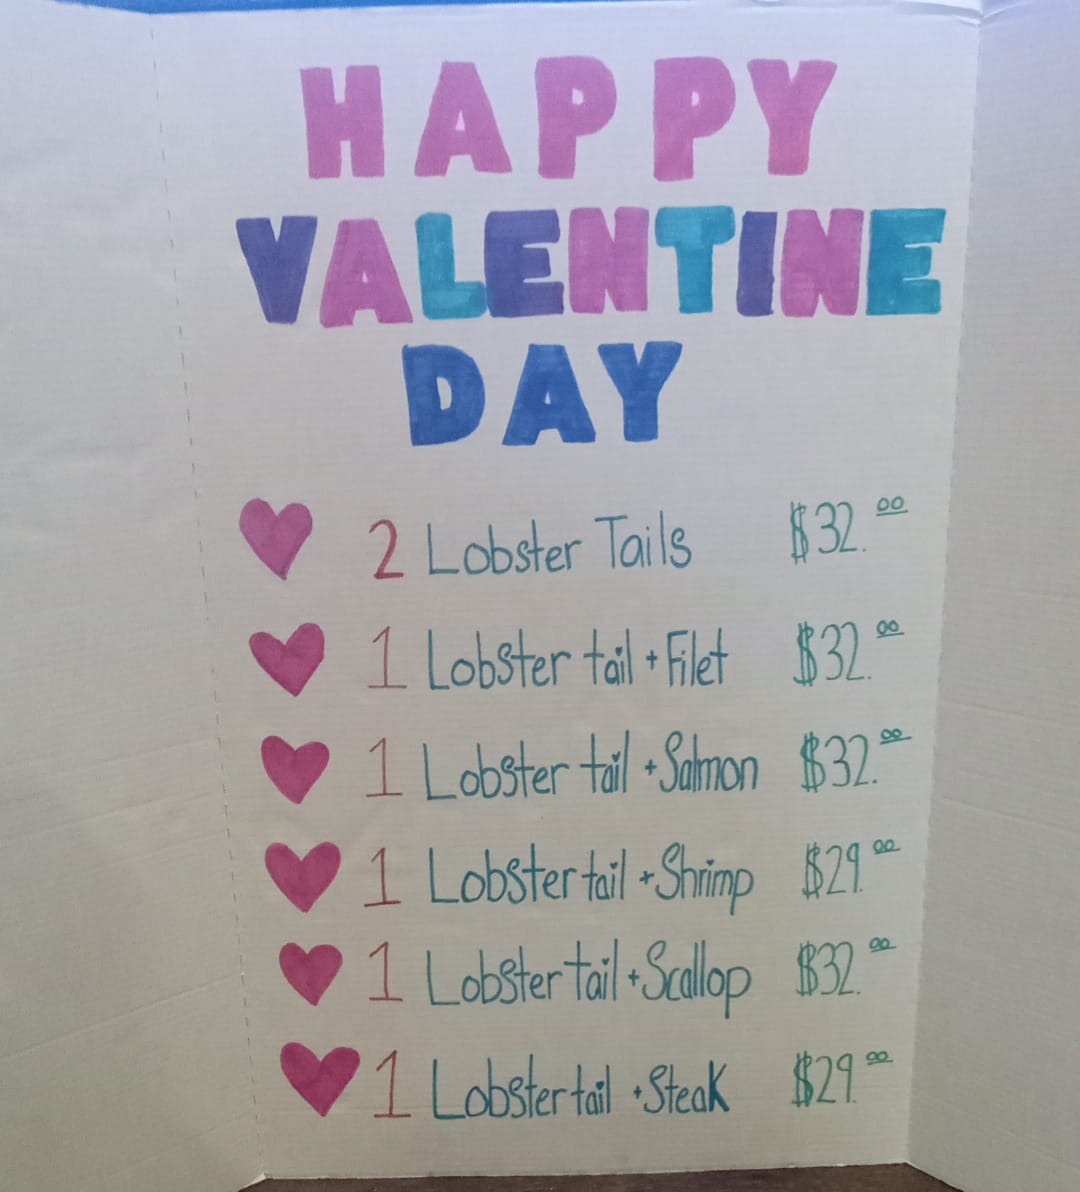 HAPPY
VALENTINE
DAY
2 Lobster Tails $32.00
1 Lobster tail + Filet $32.00
1 Lobster tail + Salmon $32.00
1 Lobster tail + Shrimp $29.00
1 Lobster tail + Scallop $32.00
1 Lobster tail + Steak $29.00